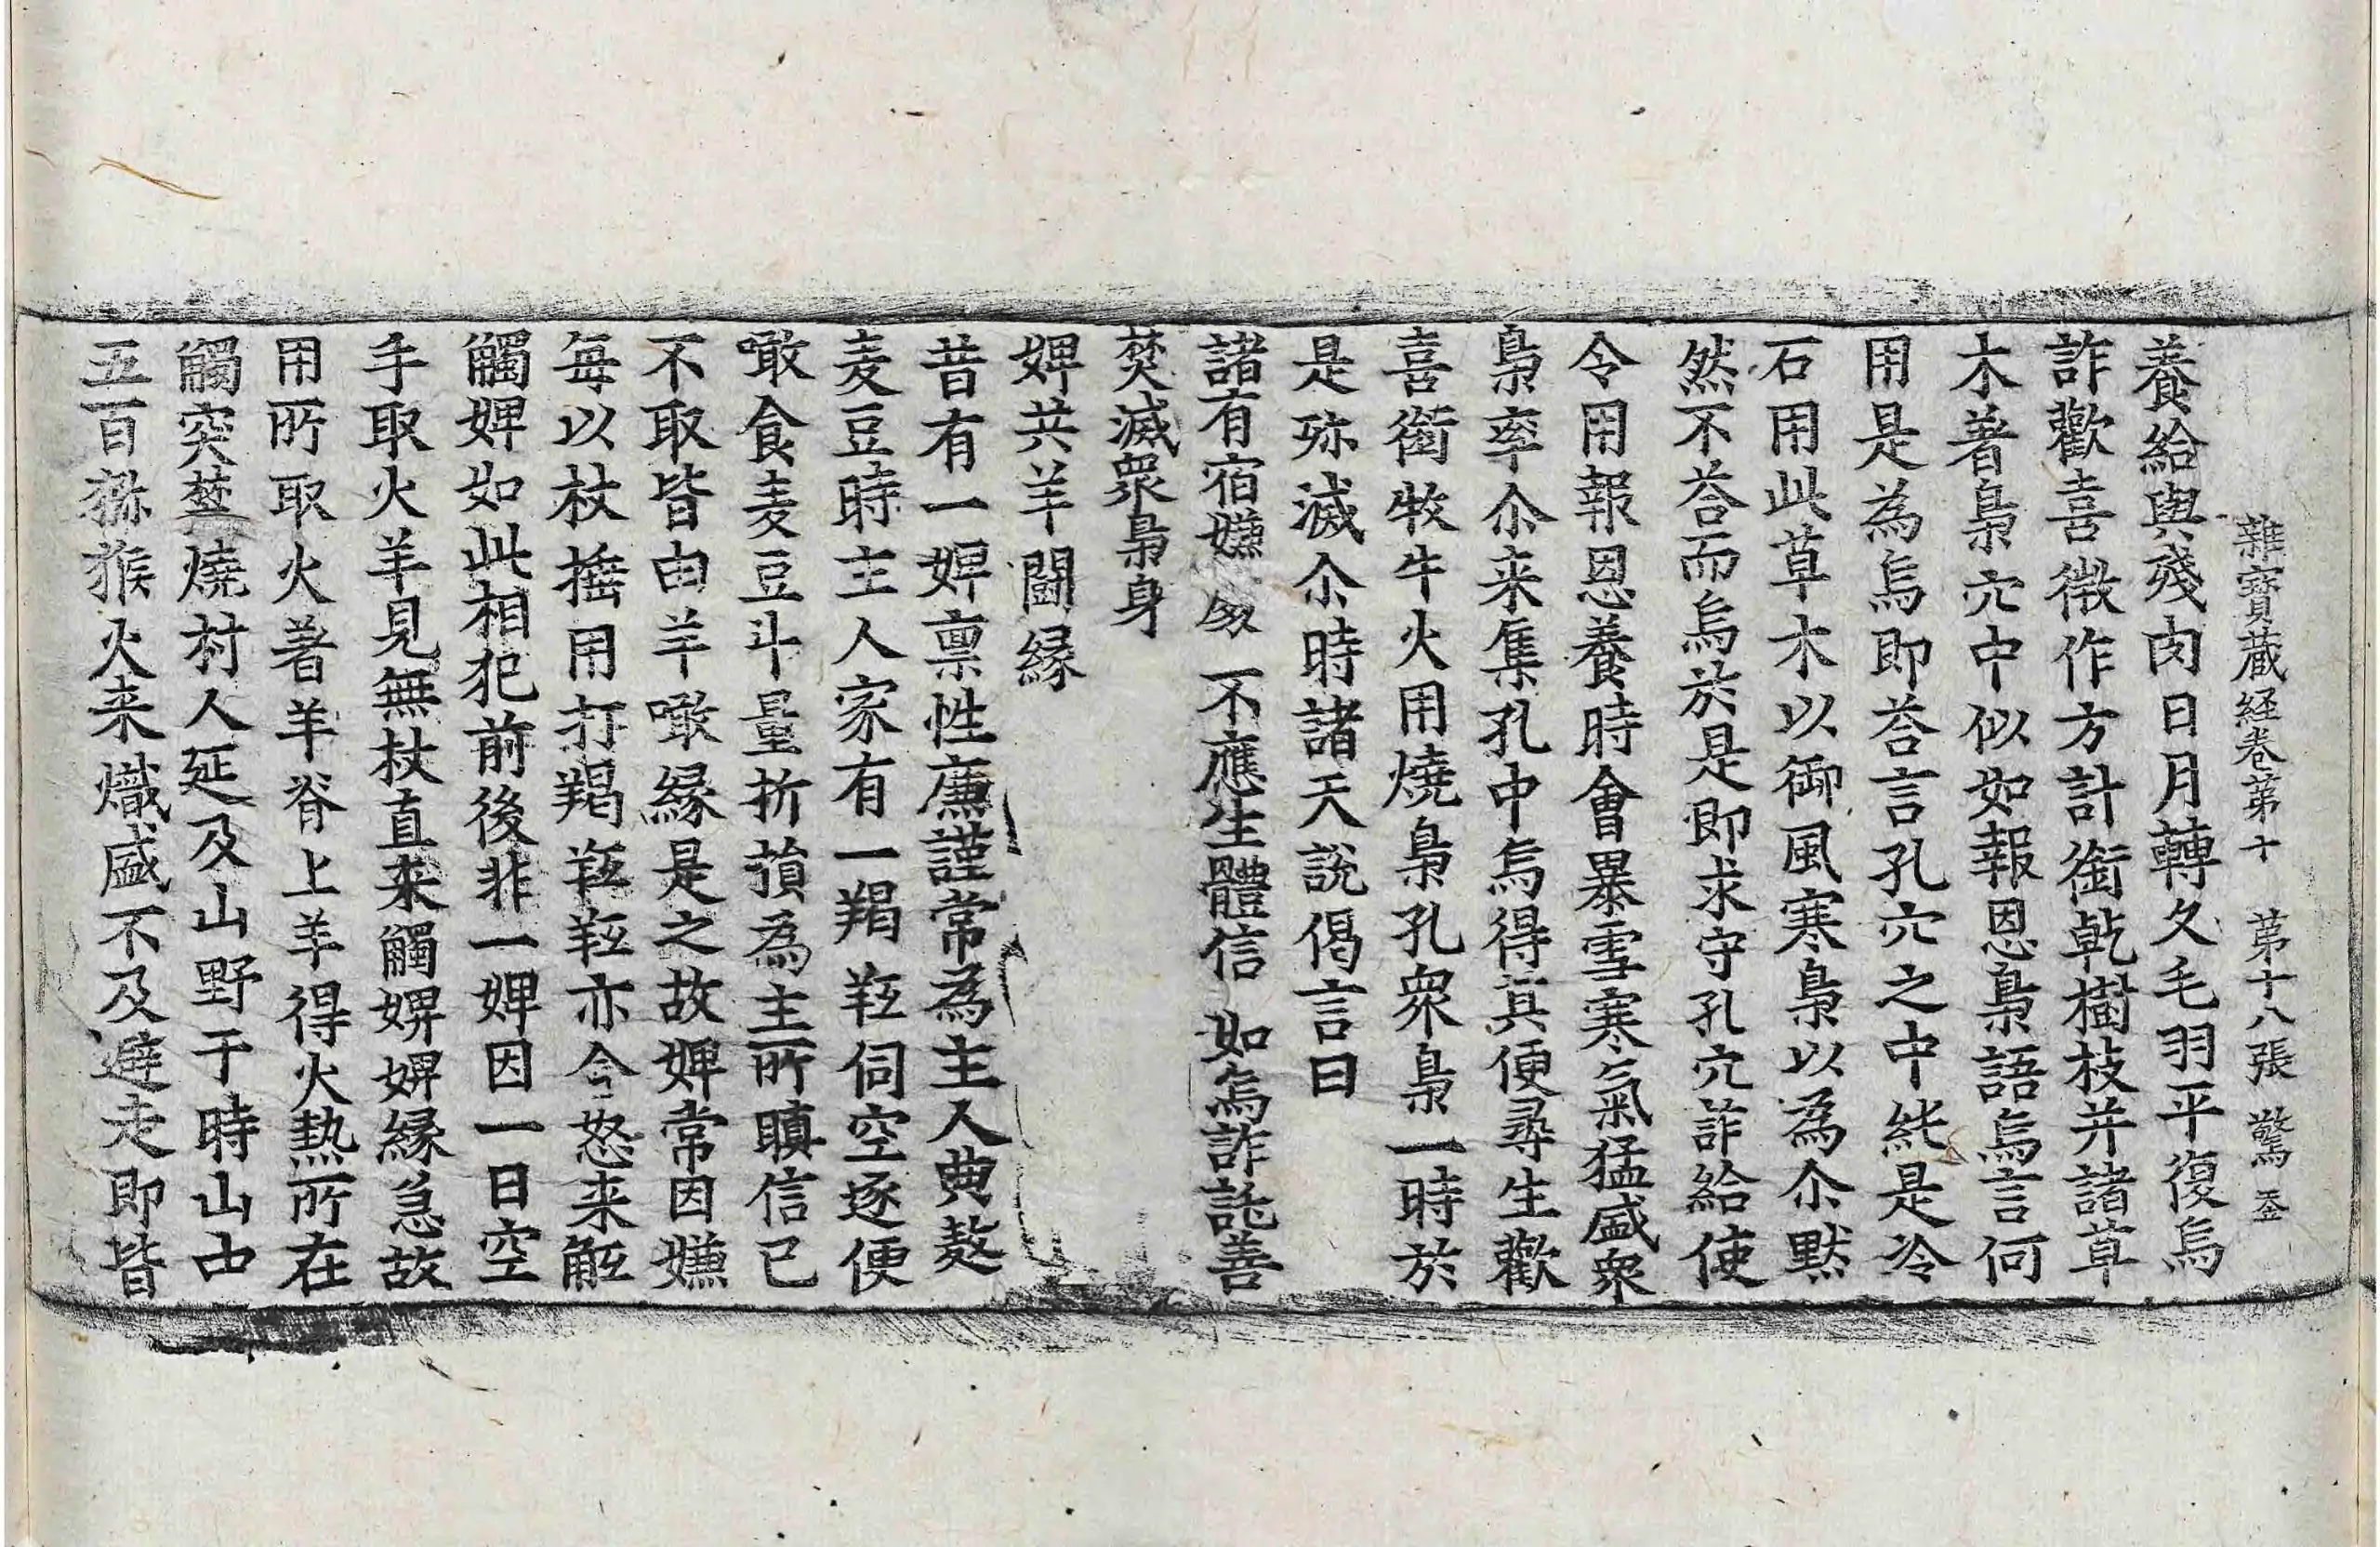 雜寶蔵経卷苐十 苐十八張 驚 𠫵
養給與殘肉日月轉久毛羽平復烏
詐歡喜微作方計銜乾樹枝并諸草
木著梟穴中似如報恩梟語烏言何
用是為烏即荅言孔穴之中純是冷
石用此草木以御風寒梟以為尒默
然不荅而烏於是即求守孔穴詐給使
令用報恩養時會暴雪寒氣猛盛衆
梟率尒来集孔中烏得其便尋生歡
喜銜牧牛火用燒梟孔衆梟一時於
是殄滅尒時諸天說偈言曰
諸有宿嫌処 不應生體信 如烏詐託善
焚滅衆梟身
婢共羊鬪緣
昔有一婢禀性廉謹常為主人典𪍑
麦豆時主人家有一羯羝伺空逐便
噉食麦豆斗量折損為主所瞋信已
不取皆由羊噉緣是之故婢常因嫌
每以杖捶用打羯羝羝亦含怒来觝
觸婢如此相犯前後非一婢因一日空
手取火羊見無杖直来觸婢婢緣急故
用所取火著羊脊上羊得火熱所在
觸突焚燒村人延及山野于時山中
五百猕猴火来熾盛不及避走即皆